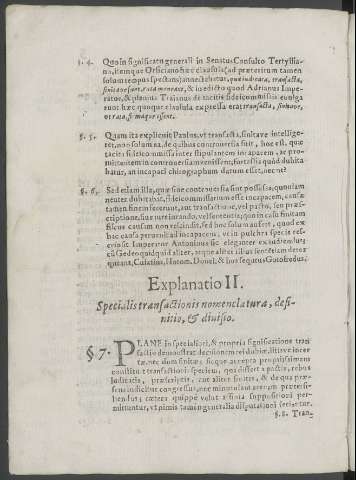 §. 4. Quo in significatu generali in Senatus Consulto Tertyllia-
no, itemque Orficiano hæc clausula (ad præteritum tamen
solum tempus spectans) annectebatur, quæ iudicata, transacta,
finitave sunt, rata maneant, & in edicto quod Adrianus Impe-
rator, & plurima Traianus de tacitis fideicommissis evulga
runt hæc quoque clausula expressa erat,
§. 5. Quam ita explicuit Paulus, vt transacta, finitave intellige-
ret, non solum ea, de quibus controuersia fuit, hoc est, quæ
taciti fideicommissi inter stipulantem incapacem, ac pro-
mittentem in controuersiam venissent, fortassis quòd dubita
batur, an incapaci chirographum datum esset, nec ne?
§. 6. Sed etiam illa, quæ sine controuersia sint possessa, quoniam
neuter dubitabat, fideicommissarium esse incapacem, causæ
tamen finem fecerunt, aut transactione, vel pacto, seu præs-
criptione, siue iureiurando, vel sententia; quo in casu finitam
fiscus causam non rescindit, sed hoc solum aufert, quod ex
hac causa peruenit ad incapacem, vt in pulchri specie res-
crio sit Imperator Antoninus sic eleganter ex
cū Gedeon quidquid aliter, atque aliter illius sententiam detor
queant, Cuiatius, Hotom. Donel. & hos sequutus Gotofredus.
Explanatio II.
Specialis transactionis nomenclatura, defi-
nitio, & diuisio.
§. 7. PLANE in specialiori, & propria significatione tran
sactio demonstrat decisionem rei dubiæ, litisve incer
tæ, nec dum finitæ; sicque accepta propriissimam
constituit transactionis speciem, quæ differt a pactis, rebus
iudicatis, præscriptis, aut aliter finitis, & de qua præ-
sens indicitur congressus, nec minutulam areram præteri-
hendus; cætera quippe velut a finita suppositioni per-
mittuntur, vt nimis tamen generalia disputationi serviantur.
§. 8. Tran-